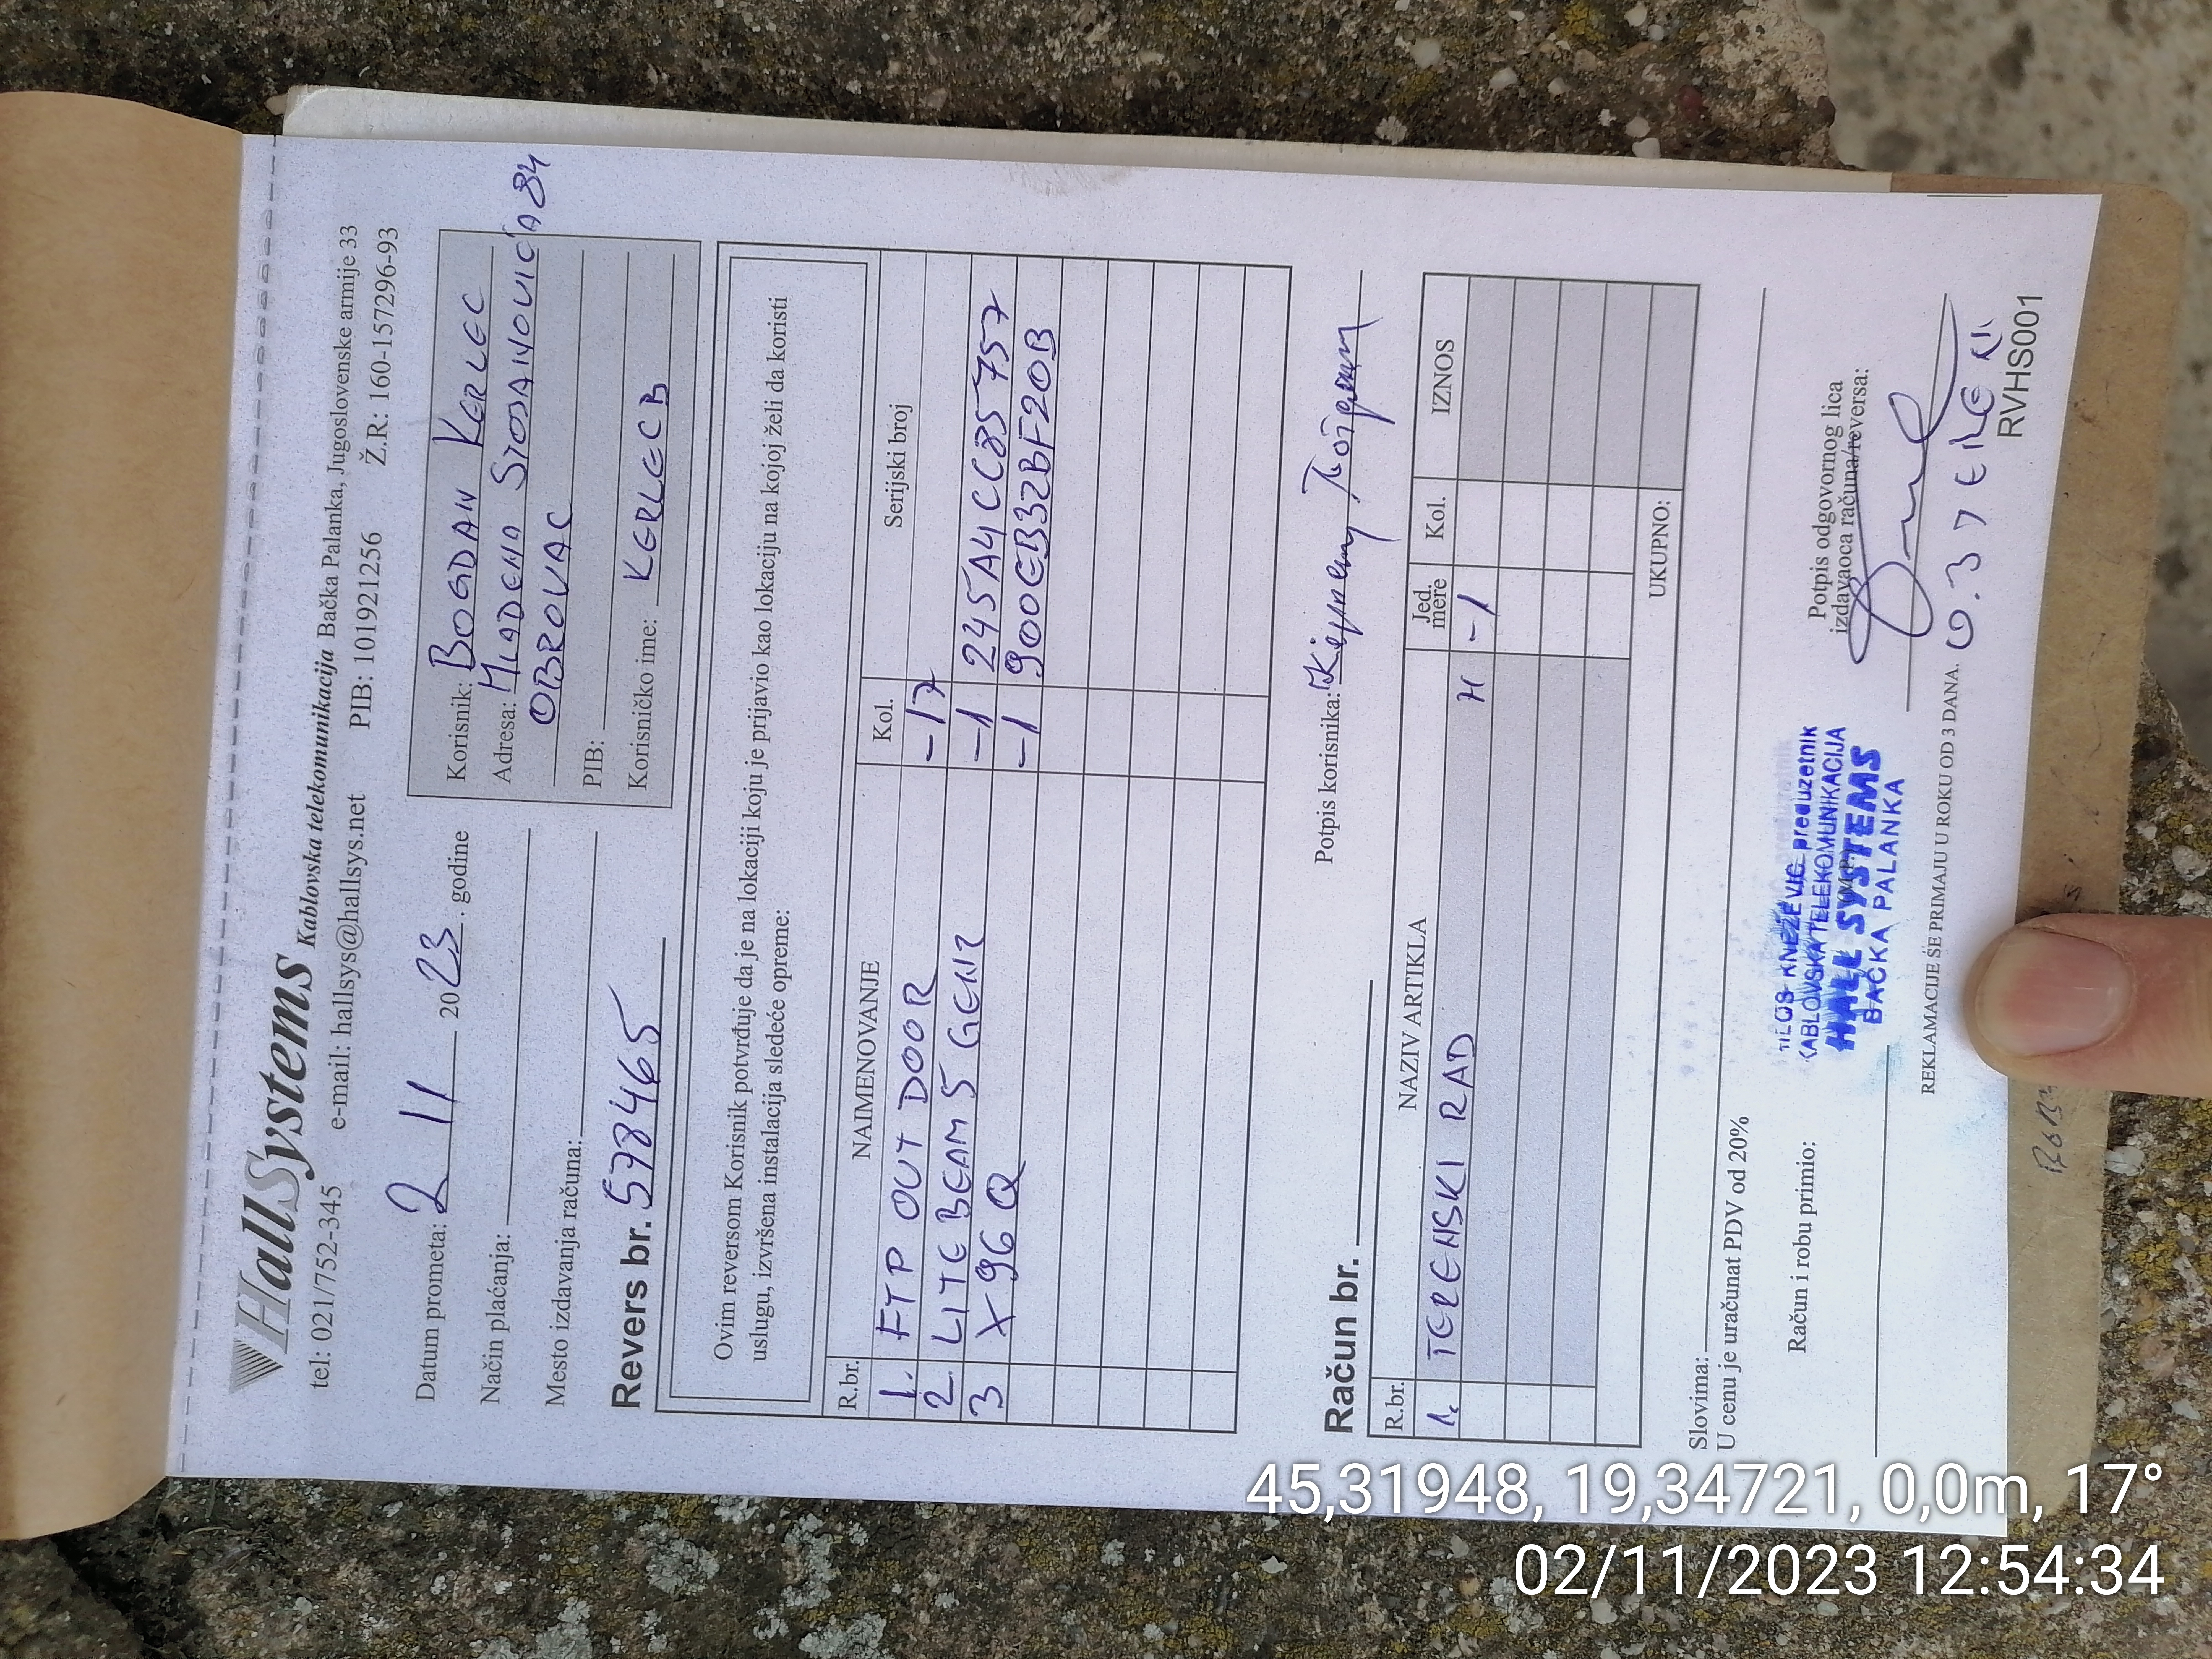 HallSystems Kablovska telekomunikacija Bačka Palanka, Jugoslovenske armije 33
tel: 021/752-345 e-mail: hallsys@hallsys.net PIB: 101921256 Ž.R: 160-157296-93
Datum prometa: 2 11 2023. godine
Način plaćanja:
Mesto izdavanja računa:
Korisnik: BOGDAN KERLEC
Adresa: MLADENA STOJANOVIĆA 84
OBROVAC
PIB:
Korisničko ime: KERLECB
Revers br. 578465
Ovim reversom Korisnik potvrđuje da je na lokaciji koju je prijavio kao lokaciju na kojoj želi da koristi
uslugu, izvršena instalacija sledeće opreme:
R.br. NAIMENOVANJE Kol. Serijski broj
1. FTP OUTDOOR -17
2. LITE BEAM 5 GEN2 -1 245A4CC85757
3 X96Q -1 900EB32BF20B
Potpis korisnika:
Račun br.
R.br. NAZIV ARTIKLA Jed. mere Kol. IZNOS
1. TERENSKI RAD H -1
UKUPNO:
Slovima:
U cenu je uračunat PDV od 20%
Račun i robu primio:
KNEŽEVIĆ preduzetnik
KABLOVSKA TELEKOMUNIKACIJA
HALL SYSTEMS
BAČKA PALANKA
Potpis odgovornog lica
izdavaoca računa/reversa:
REKLAMACIJE SE PRIMAJU U ROKU OD 3 DANA.
RVHS001
45,31948, 19,34721, 0,0m, 17°
02/11/2023 12:54:34